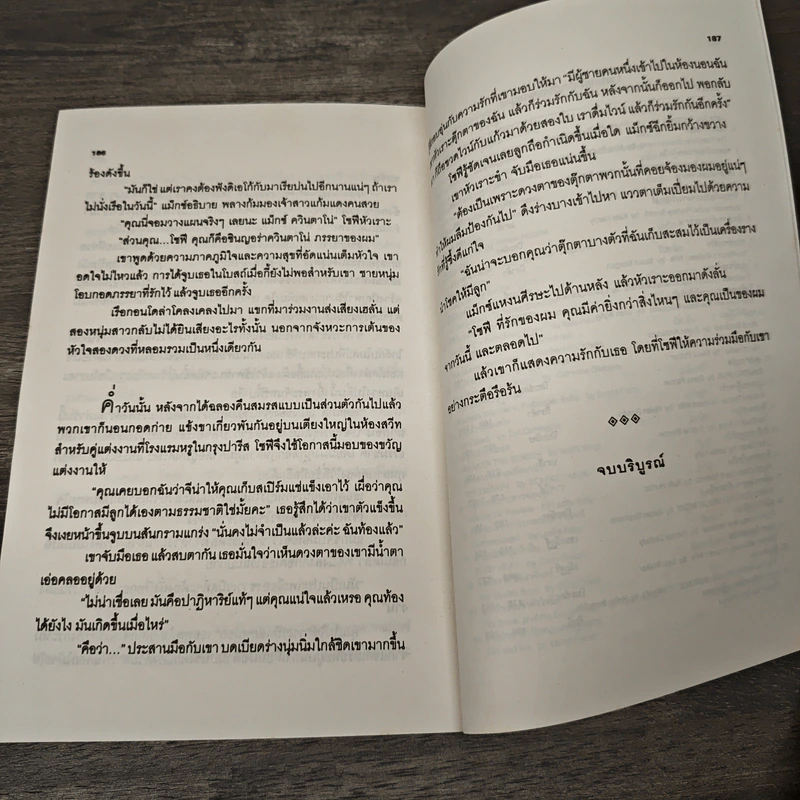 186
ร้องดังขึ้น
“มันก็ใช่ แต่เราคงต้องฟังดิเอโก้กับมาเรียบ่นไปอีกนานแน่ๆ ถ้าเรา
ไม่นั่งเรือในวันนี้” แม็กซ์อธิบาย พลางก้มมองเจ้าสาวแก้มแดงคนสวย
“คุณนี่จอมวางแผนจริงๆ เลยนะ แม็กซ์ ควินตาโน่” โซฟีหัวเราะ
“ส่วนคุณ...โซฟี คุณก็คือซินญอร่าควินตาโน่ ภรรยาของผม”
เขาพูดด้วยความภาคภูมิใจและความสุขที่อัดแน่นเต็มหัวใจ เขา
อดใจไม่ไหวแล้ว การได้จูบเธอในโบสถ์เมื่อกี้ยังไม่พอสำหรับเขา ชายหนุ่ม
โอบกอดภรรยาที่รักไว้ แล้วจูบเธออีกครั้ง
เรือกอนโดล่าโคลงเคลงไปมา แขกที่มาร่วมงานส่งเสียงเฮลั่น แต่
สองหนุ่มสาวกลับไม่ได้ยินเสียงอะไรทั้งนั้น นอกจากจังหวะการเต้นของ
หัวใจสองดวงที่หลอมรวมเป็นหนึ่งเดียวกัน
ค่ำวันนั้น หลังจากได้ฉลองคืนสมรสแบบเป็นส่วนตัวกันไปแล้ว
พวกเขาก็นอนกอดก่าย แข้งขาเกี่ยวพันกันอยู่บนเตียงใหญ่ในห้องสวีท
สำหรับคู่แต่งงานที่โรงแรมหรูในกรุงปารีส โซฟีจึงใช้โอกาสนี้มอบของขวัญ
แต่งงานให้
“คุณเคยบอกฉันว่าจีน่าให้คุณเก็บสเปิร์มแช่แข็งเอาไว้ เผื่อว่าคุณ
ไม่มีโอกาสมีลูกได้เองตามธรรมชาติใช่มั้ยคะ” เธอรู้สึกได้ว่าเขาตัวแข็งขึ้น
จึงเงยหน้าขึ้นจูบบนสันกรามแกร่ง “นั่นคงไม่จำเป็นแล้วล่ะค่ะ ฉันท้องแล้ว”
เขาจับมือเธอ แล้วสบตากัน เธอมั่นใจว่าเห็นดวงตาของเขามีน้ำตา
เอ่อคลออยู่ด้วย
“ไม่น่าเชื่อเลย มันคือปาฏิหาริย์แท้ๆ แต่คุณแน่ใจแล้วเหรอ คุณท้อง
ได้ยังไง มันเกิดขึ้นเมื่อไหร่”
“คือว่า...” ประสานมือกับเขา บดเบียดร่างนุ่มนิ่มใกล้ชิดเขามากขึ้น
187
กับความรักที่เขามอบให้มา “มีผู้ชายคนหนึ่งเข้าไปในห้องนอนฉัน
หัวเราะตุ๊กตาของฉัน แล้วก็ร่วมรักกับฉัน หลังจากนั้นก็ออกไป พอกลับ
ถือขวดไวน์กับแก้วมาด้วยสองใบ เราดื่มไวน์ แล้วก็ร่วมรักกันอีกครั้ง”
โซฟีรู้ชัดเจนเลยลูกถือกำเนิดขึ้นเมื่อใด แม็กซ์ฉีกยิ้มกว้างขวาง
เขาหัวเราะขำ จับมือเธอแน่นขึ้น
“ต้องเป็นเพราะดวงตาของตุ๊กตาพวกนั้นที่คอยจ้องมองผมอยู่แน่ๆ
ทำให้ผมลืมป้องกันไป” ดึงร่างบางเข้าไปหา แววตาเต็มเปี่ยมไปด้วยความ
รักที่รู้ซึ้งดีแก่ใจ
“ฉันน่าจะบอกคุณว่าตุ๊กตาบางตัวที่ฉันเก็บสะสมไว้เป็นเครื่องราง
นำโชคให้มีลูก”
แม็กซ์แหงนศีรษะไปด้านหลัง แล้วหัวเราะออกมาดังลั่น
“โซฟี ที่รักของผม คุณมีค่ายิ่งกว่าสิ่งไหนๆ และคุณเป็นของผม
จากวันนี้ และตลอดไป”
แล้วเขาก็แสดงความรักกับเธอ โดยที่โซฟีให้ความร่วมมือกับเขา
อย่างกระตือรือร้น
จบบริบูรณ์